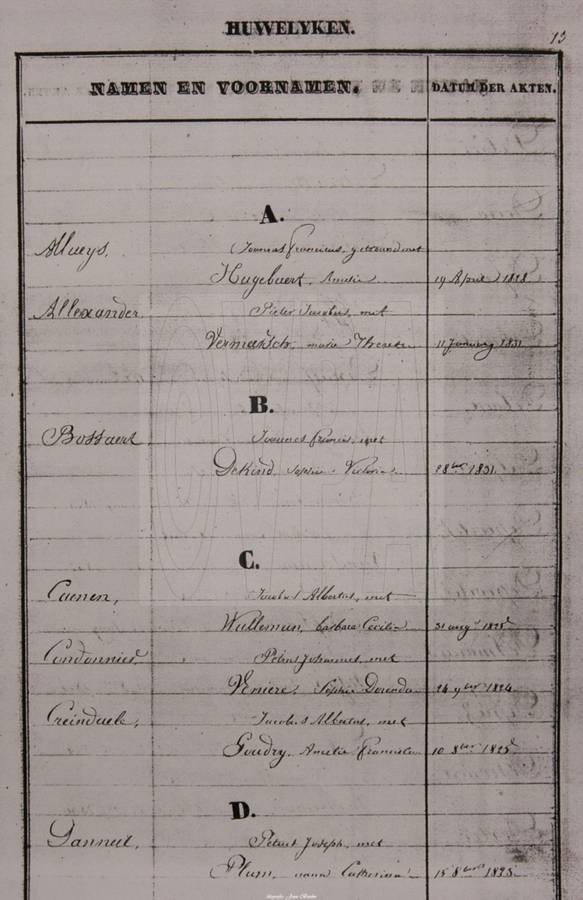 HUWELYKEN.
13
NAMEN EN VOORNAMEN. DATUM DER AKTEN.
A.
Allueys, Joannes Franciscus, getrouwd met
Hugebaert, Amelie 19 April 1828
Allexander, Pieter Jacobus, met
Vermarsch, marie Therese 11 January 1831
B.
Bossaert Joannes francis, met
Dekind, Sophie Victoria 8ber 1831
C.
Caenen, Jacobus Albertus, met
Wulleman, barbara Cecilia 31 aug 1825
Condonnier, Petrus Johannes, met
Veniere, Sophie 24 9ber 1824
Creindaele, Jacobus Albertus, met
Goudry, Amelie Francisca 10 8ber 1825
D.
Danneel, Petrus Joseph, met
Plum, Catherina 15 8ber 1825